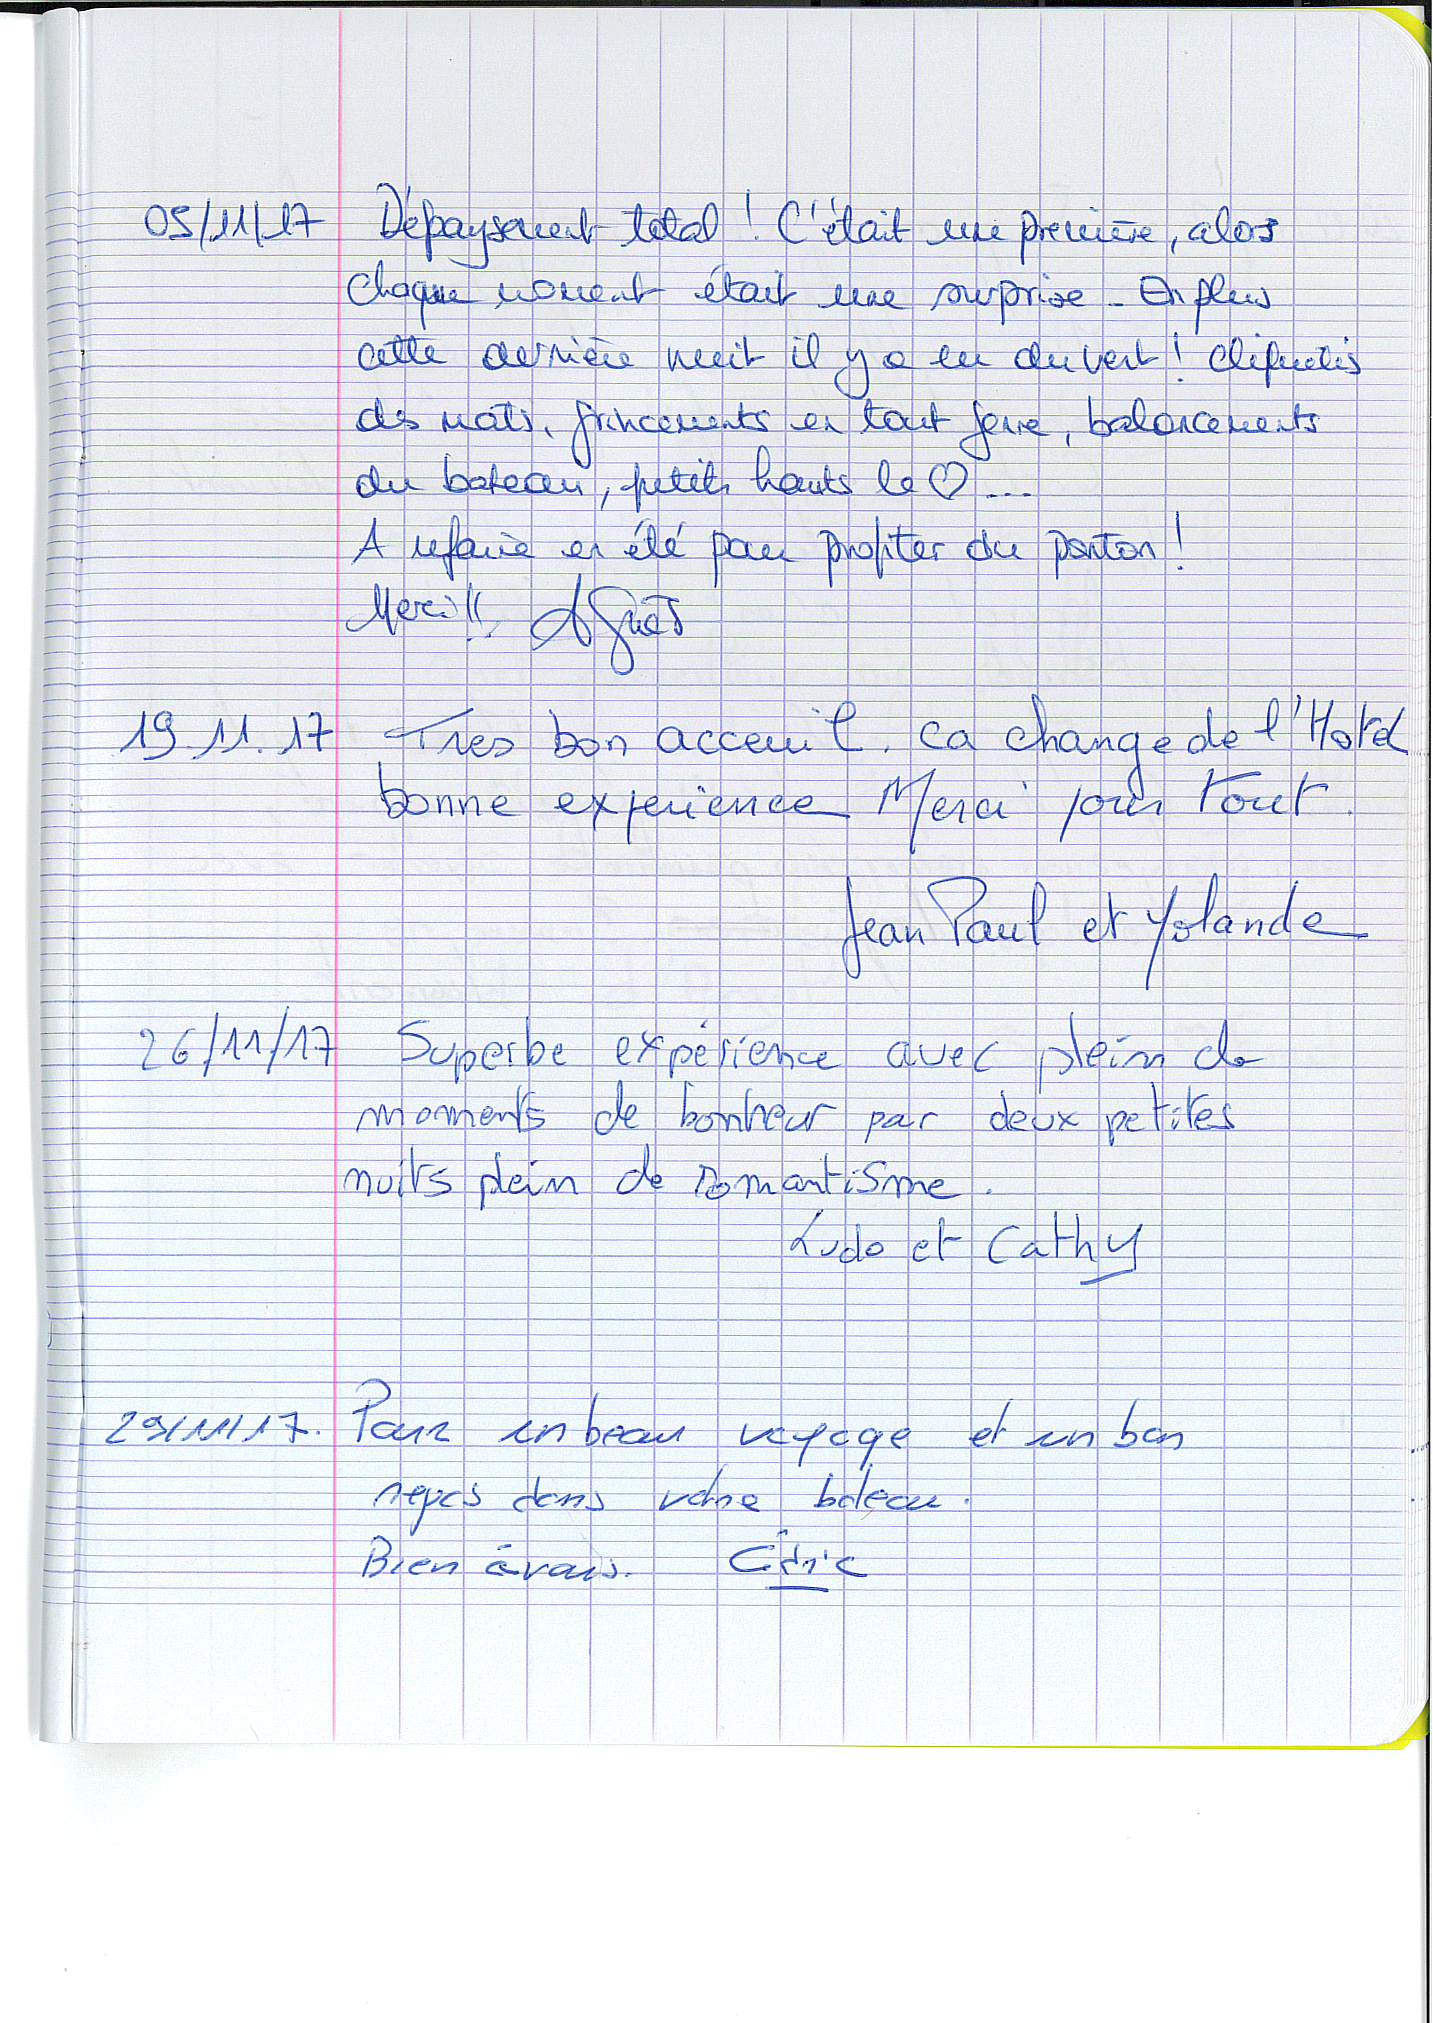 05/11/17 Dépaysement total ! C'était une première, alors
chaque moment était une surprise - En plus
cette dernière nuit il y a eu du vent ! cliquetis
des mats, grincements en tout genre, balancements
du bateau, petits hauts le ♡ ...
A refaire en été pour profiter du ponton !
Merci !! Agnès
19.11.17 Tres bon acceuil. ca change de l'Hotel
bonne experience Merci pour tout.
Jean Paul et Yolande
26/11/17 Superbe expérience avec plein de
moments de bonheur par deux petites
nuits plein de romantisme.
Ludo et Cathy
29/11/17. Pour un beau voyage et un bon
repos dans votre bateau.
Bien à vous. Cédric